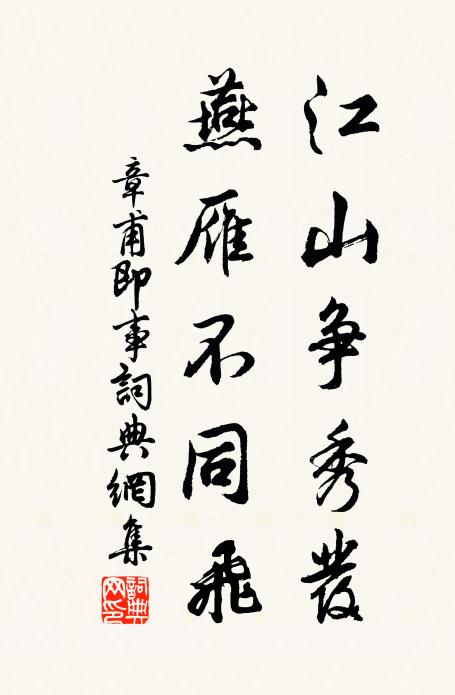 江山争秀發
燕雁不同飛
章甫即事詞典網集
詞典網印